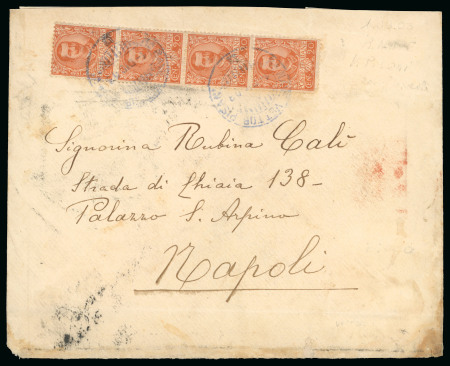 Signorina Rubina Calì
Strada di Chiaia 138-
Palazzo S. Arpino
Napoli